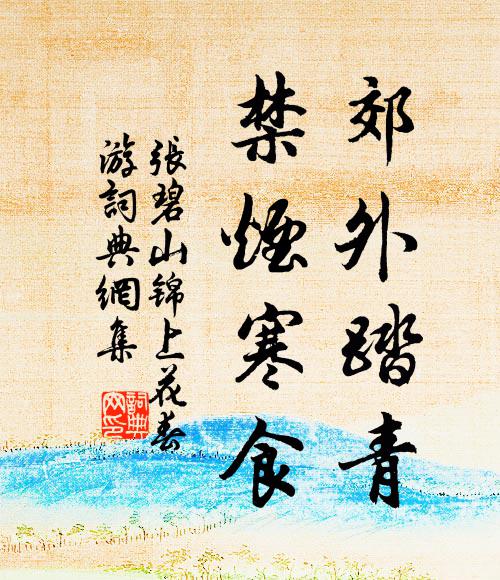 郊外踏青
禁煙寒食
張碧山錦上花春
游詞典網集
詞典
网印